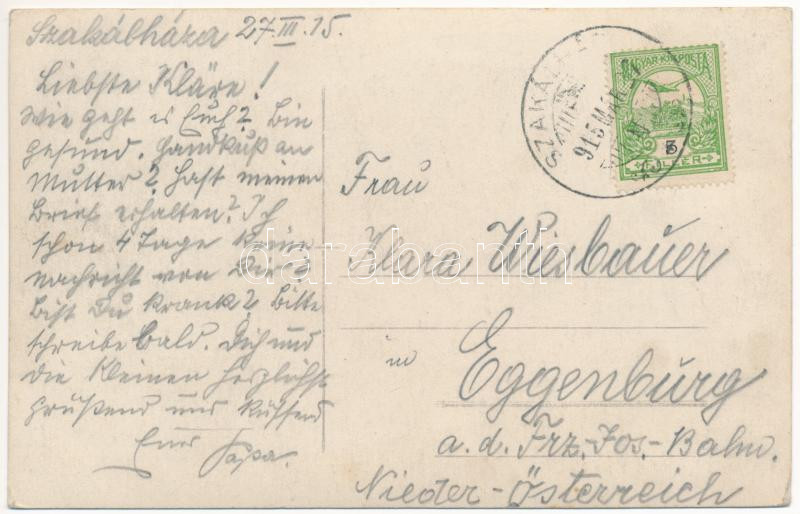 Szakálháza 27.III.15.
Liebste Kläre!
Wie geht es Euch? Bin
gesund. Handkuß an
Mutter? Hast meinen
Brief erhalten? Ich
schon 4 Tage keine
nachricht von Dir?
Bist Du krank? Bitte
schreibe bald. Dich und
die Kleinen herzlichst
grüßend und küssend
Euer Papa.
MAGYAR KIR. POSTA
5
FILLÉR
SZAKÁL
915 MÁR
Frau
Klara Wiesbauer
in
Eggenburg
a. d. Frz.-Jos.-Bahn.
Nieder-Österreich
darabanth